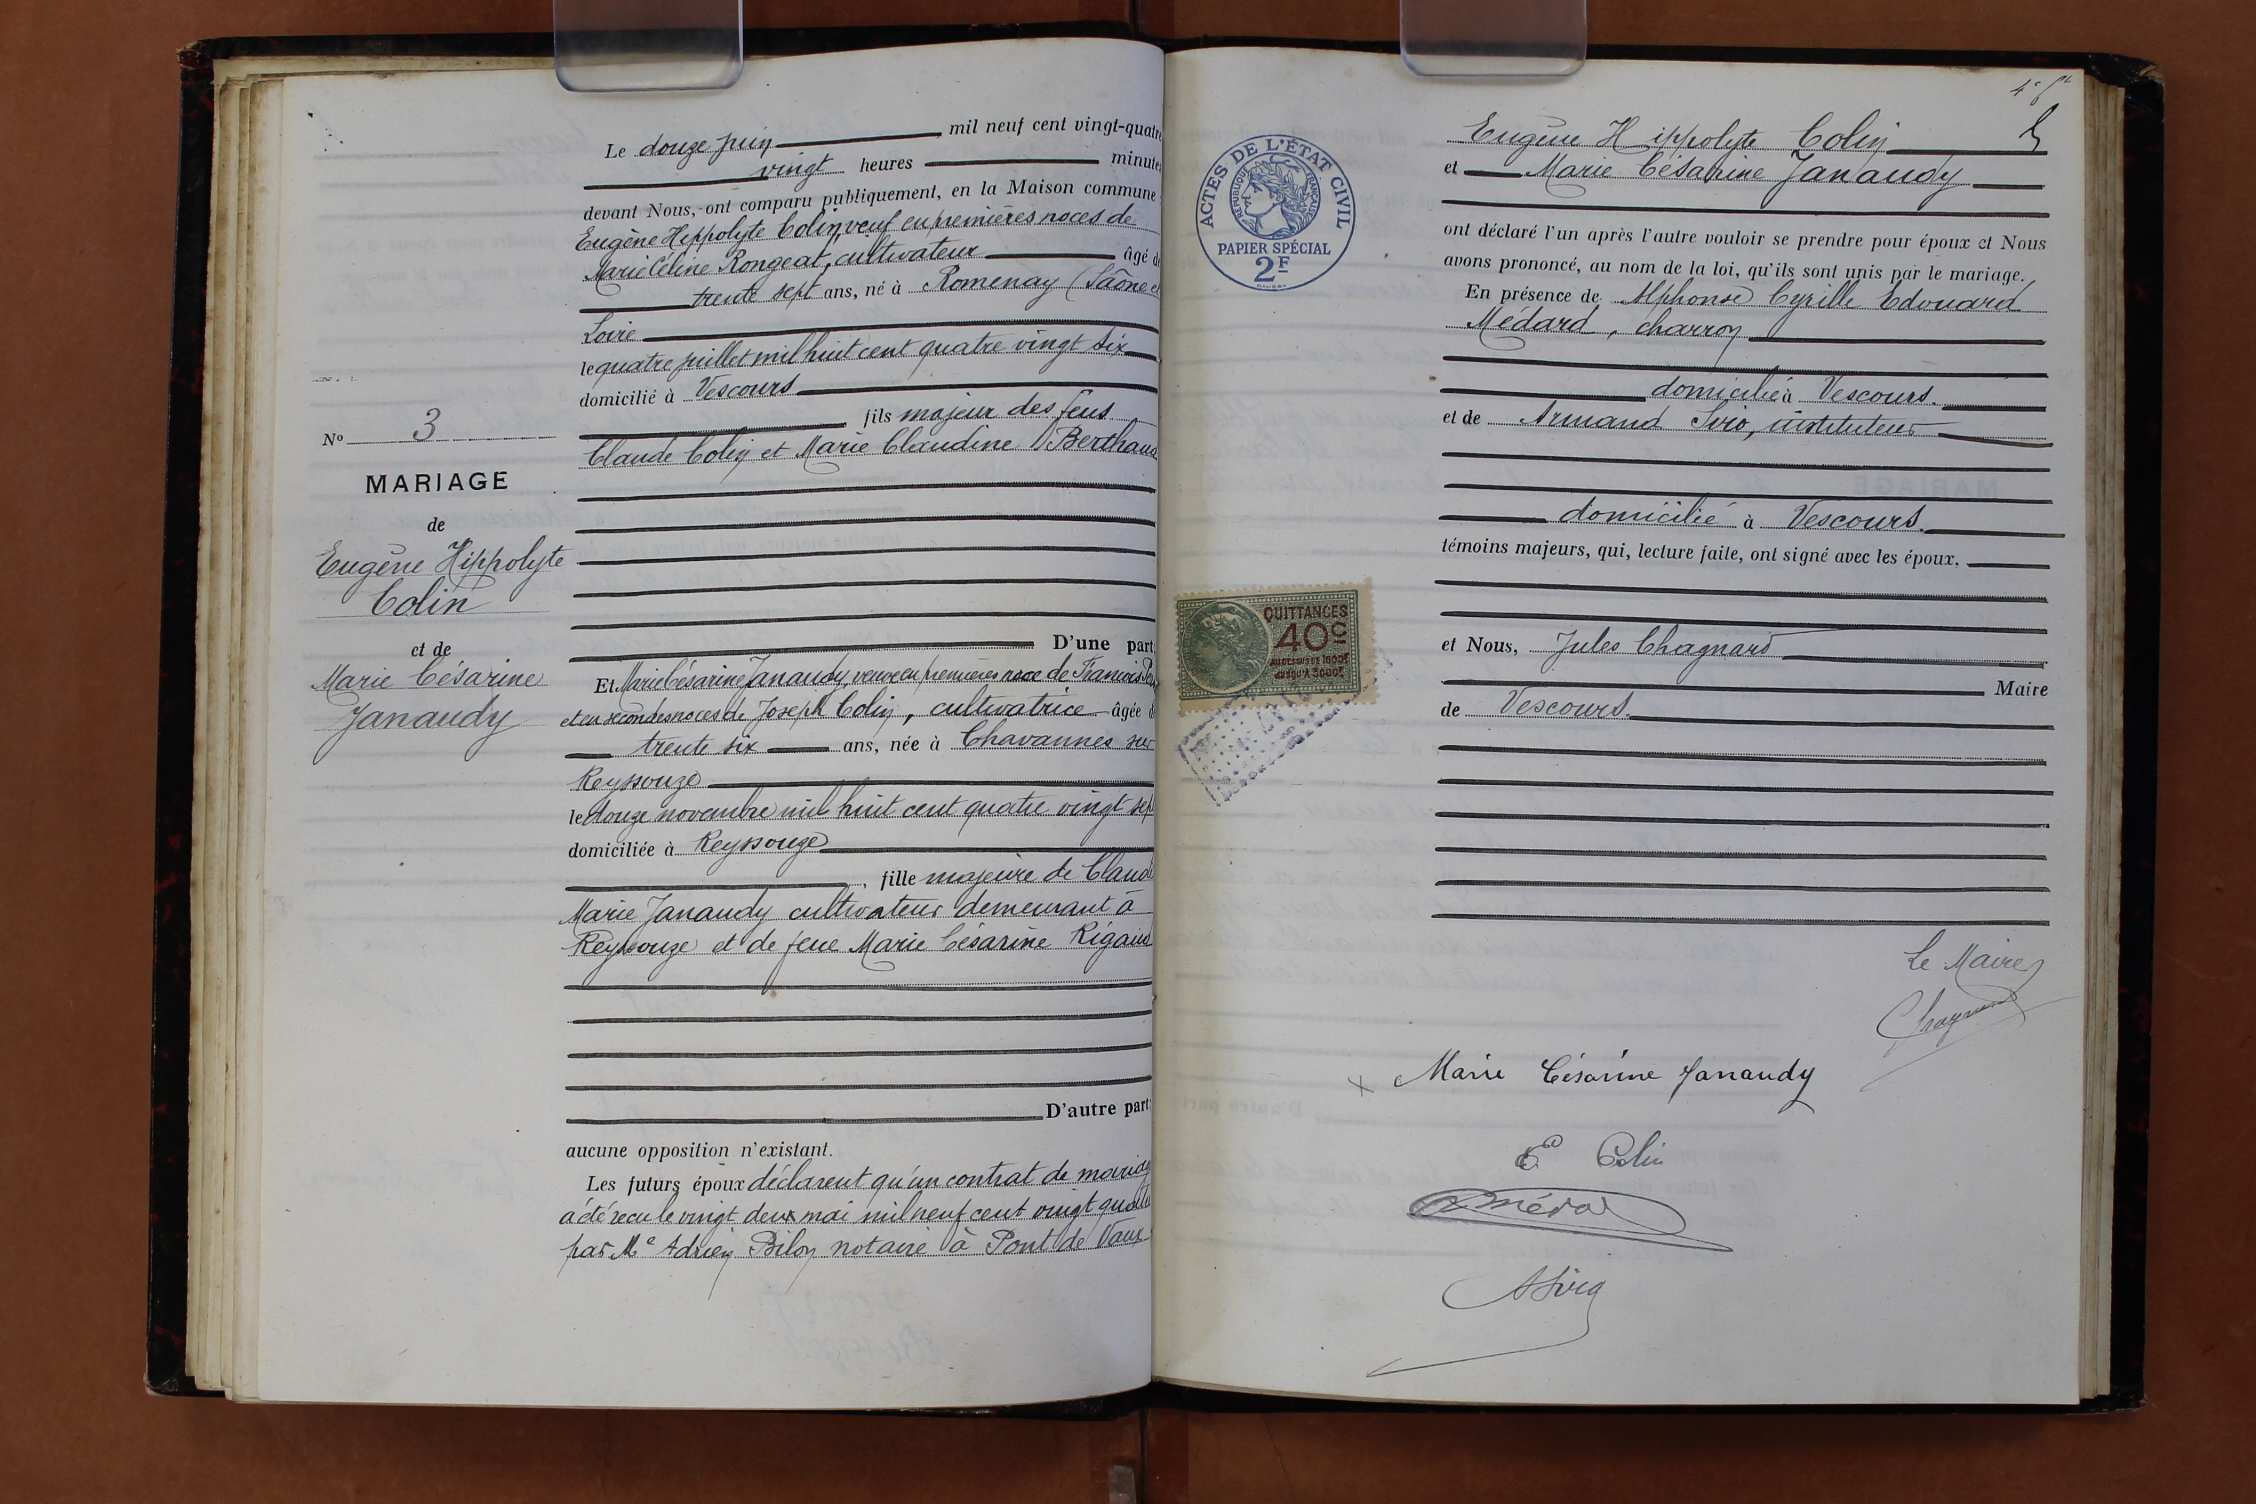 Le douze juin mil neuf cent vingt-quatre
vingt heures minutes
devant Nous, ont comparu publiquement, en la Maison commune :
Eugène Hippolyte Colin veuf en premières noces de
Marie Céline Rongeat, cultivateur âgé de
trente sept ans, né à Romenay (Saône et
Loire
le quatre juillet mil huit cent quatre vingt six
domicilié à Vescours
fils majeur des feus
Claude Colin et Marie Claudine Berthaud
No 3
MARIAGE
de
Eugène Hippolyte
Colin
et de
Marie Césarine
Janaudy
D'une part;
Et Marie Césarine Janaudy, veuve en premières noce de François
et en secondes noces de Joseph Colin, cultivatrice âgée de
trente six ans, née à Chavannes sur
Reyssouze
le douze novembre mil huit cent quatre vingt sept
domiciliée à Reyssouze
, fille majeure de Claude
Marie Janaudy cultivateur demeurant à
Reyssouze et de feue Marie Césarine Rigaud
D'autre part;
aucune opposition n'existant.
Les futurs époux déclarent qu'un contrat de mariage
a été recu le vingt deux mai mil neuf cent vingt quatre
par Me Adrien Bilon notaire à Pont de Vaux
ACTES DE L'ÉTAT CIVIL
RÉPUBLIQUE FRANÇAISE
PAPIER SPÉCIAL
2F
Eugène Hippolyte Colin
et Marie Césarine Janaudy
ont déclaré l'un après l'autre vouloir se prendre pour époux et Nous
avons prononcé, au nom de la loi, qu'ils sont unis par le mariage.
En présence de Alphonse Cyrille Edouard
Médard, charron
domicilié à Vescours.
et de Armand Sirio, instituteur
domicilié à Vescours.
témoins majeurs, qui, lecture faite, ont signé avec les époux.
QUITTANCES
40c
AU DESSUS DE 1000F
JUSQU'A 3000F
et Nous, Jules Chagnard
Maire
de Vescours.
Le Maire
Chagnard
Marie Césarine Janaudy
E Colin